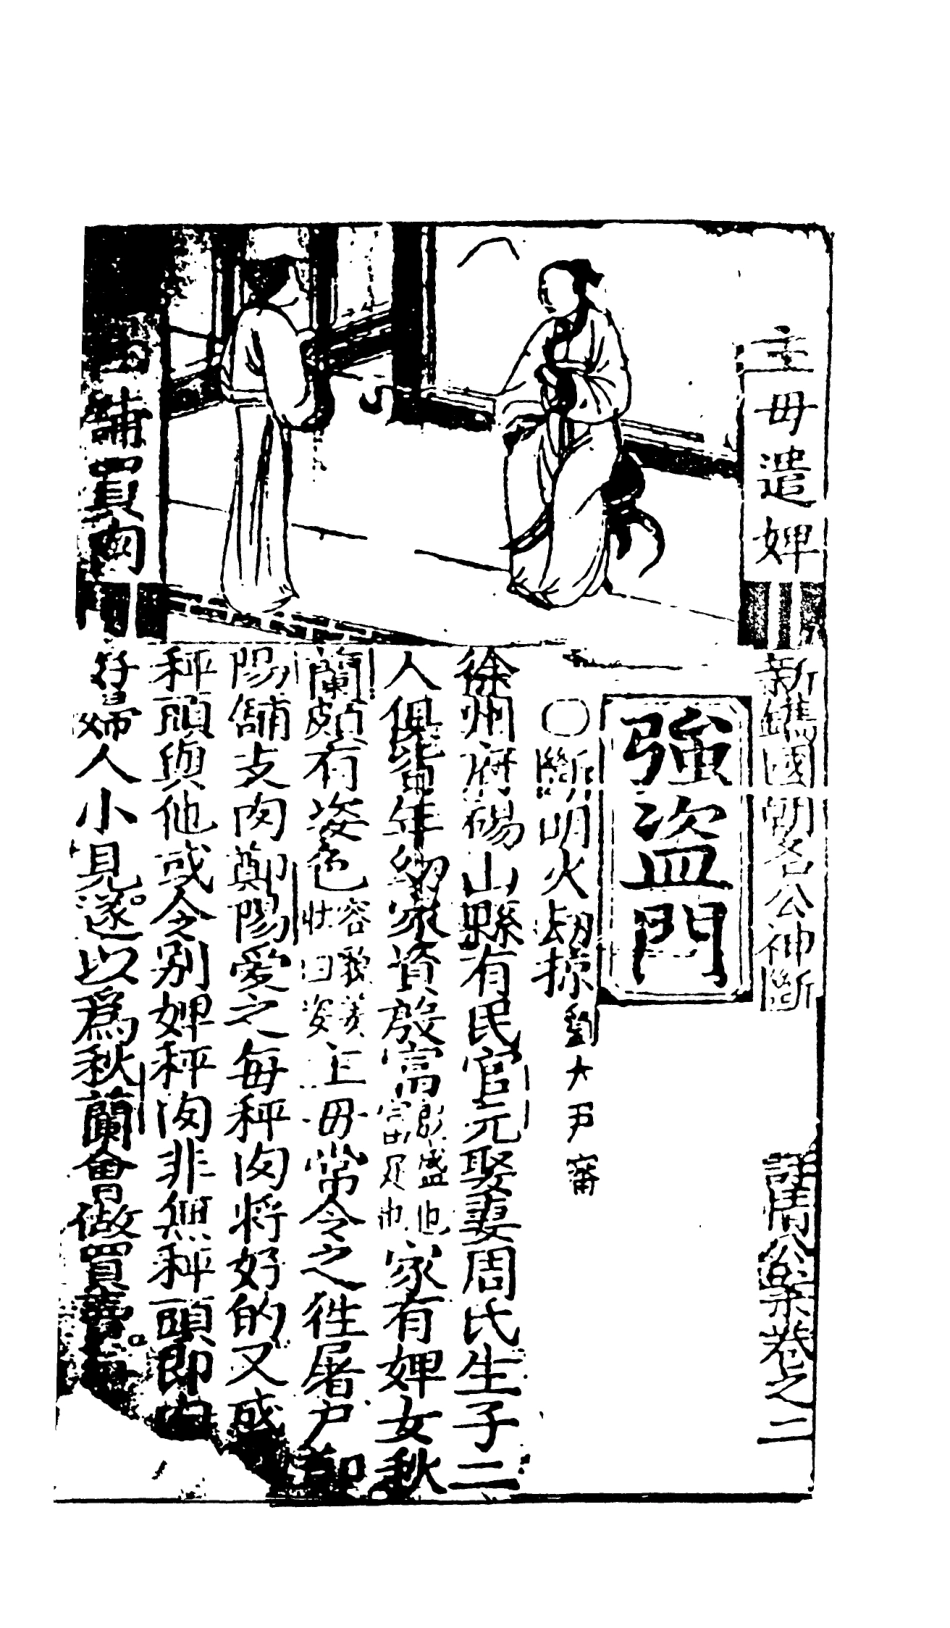 主毋遣婢
舖買肉
新鐫國朝名公神斷
詳情公案卷之二
強盜門
○斷明火刼掠 劉大尹審
徐州府碭山縣有民官元娶妻周氏生子二
人俱皆年幼家資殷富 殷盛也 富足也 家有婢女秋
蘭頗有姿色 容貌美 壯曰姿 主毋常令之徃屠户鄭
陽舖支肉鄭陽愛之每秤肉將好的又成
秤頭與他或令別婢秤肉非無秤頭即肉
好婦人小見遂以爲秋蘭會做買賣。每